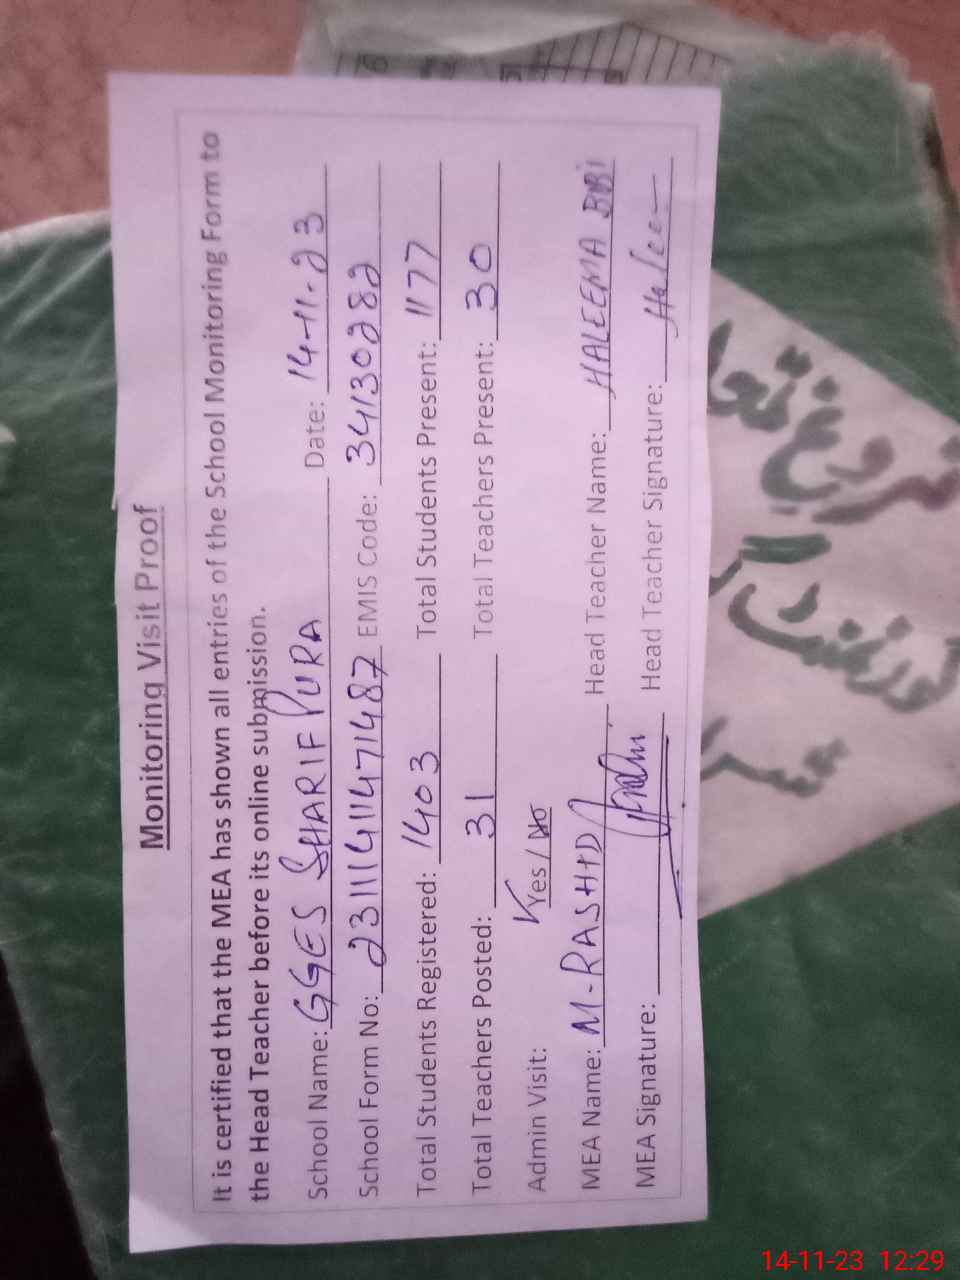 Monitoring Visit Proof
It is certified that the MEA has shown all entries of the School Monitoring Form to
the Head Teacher before its online submission.
School Name: GGES SHARIF PURA Date: 14-11-23
School Form No: 23111411471487 EMIS Code: 34130282
Total Students Registered: 1403 Total Students Present: 1177
Total Teachers Posted: 31 Total Teachers Present: 30
Admin Visit: Yes / No
MEA Name: M-RASHID Head Teacher Name: HALEEMA BIBI
MEA Signature: Head Teacher Signature:
گورنمنٹ
14-11-23 12:29